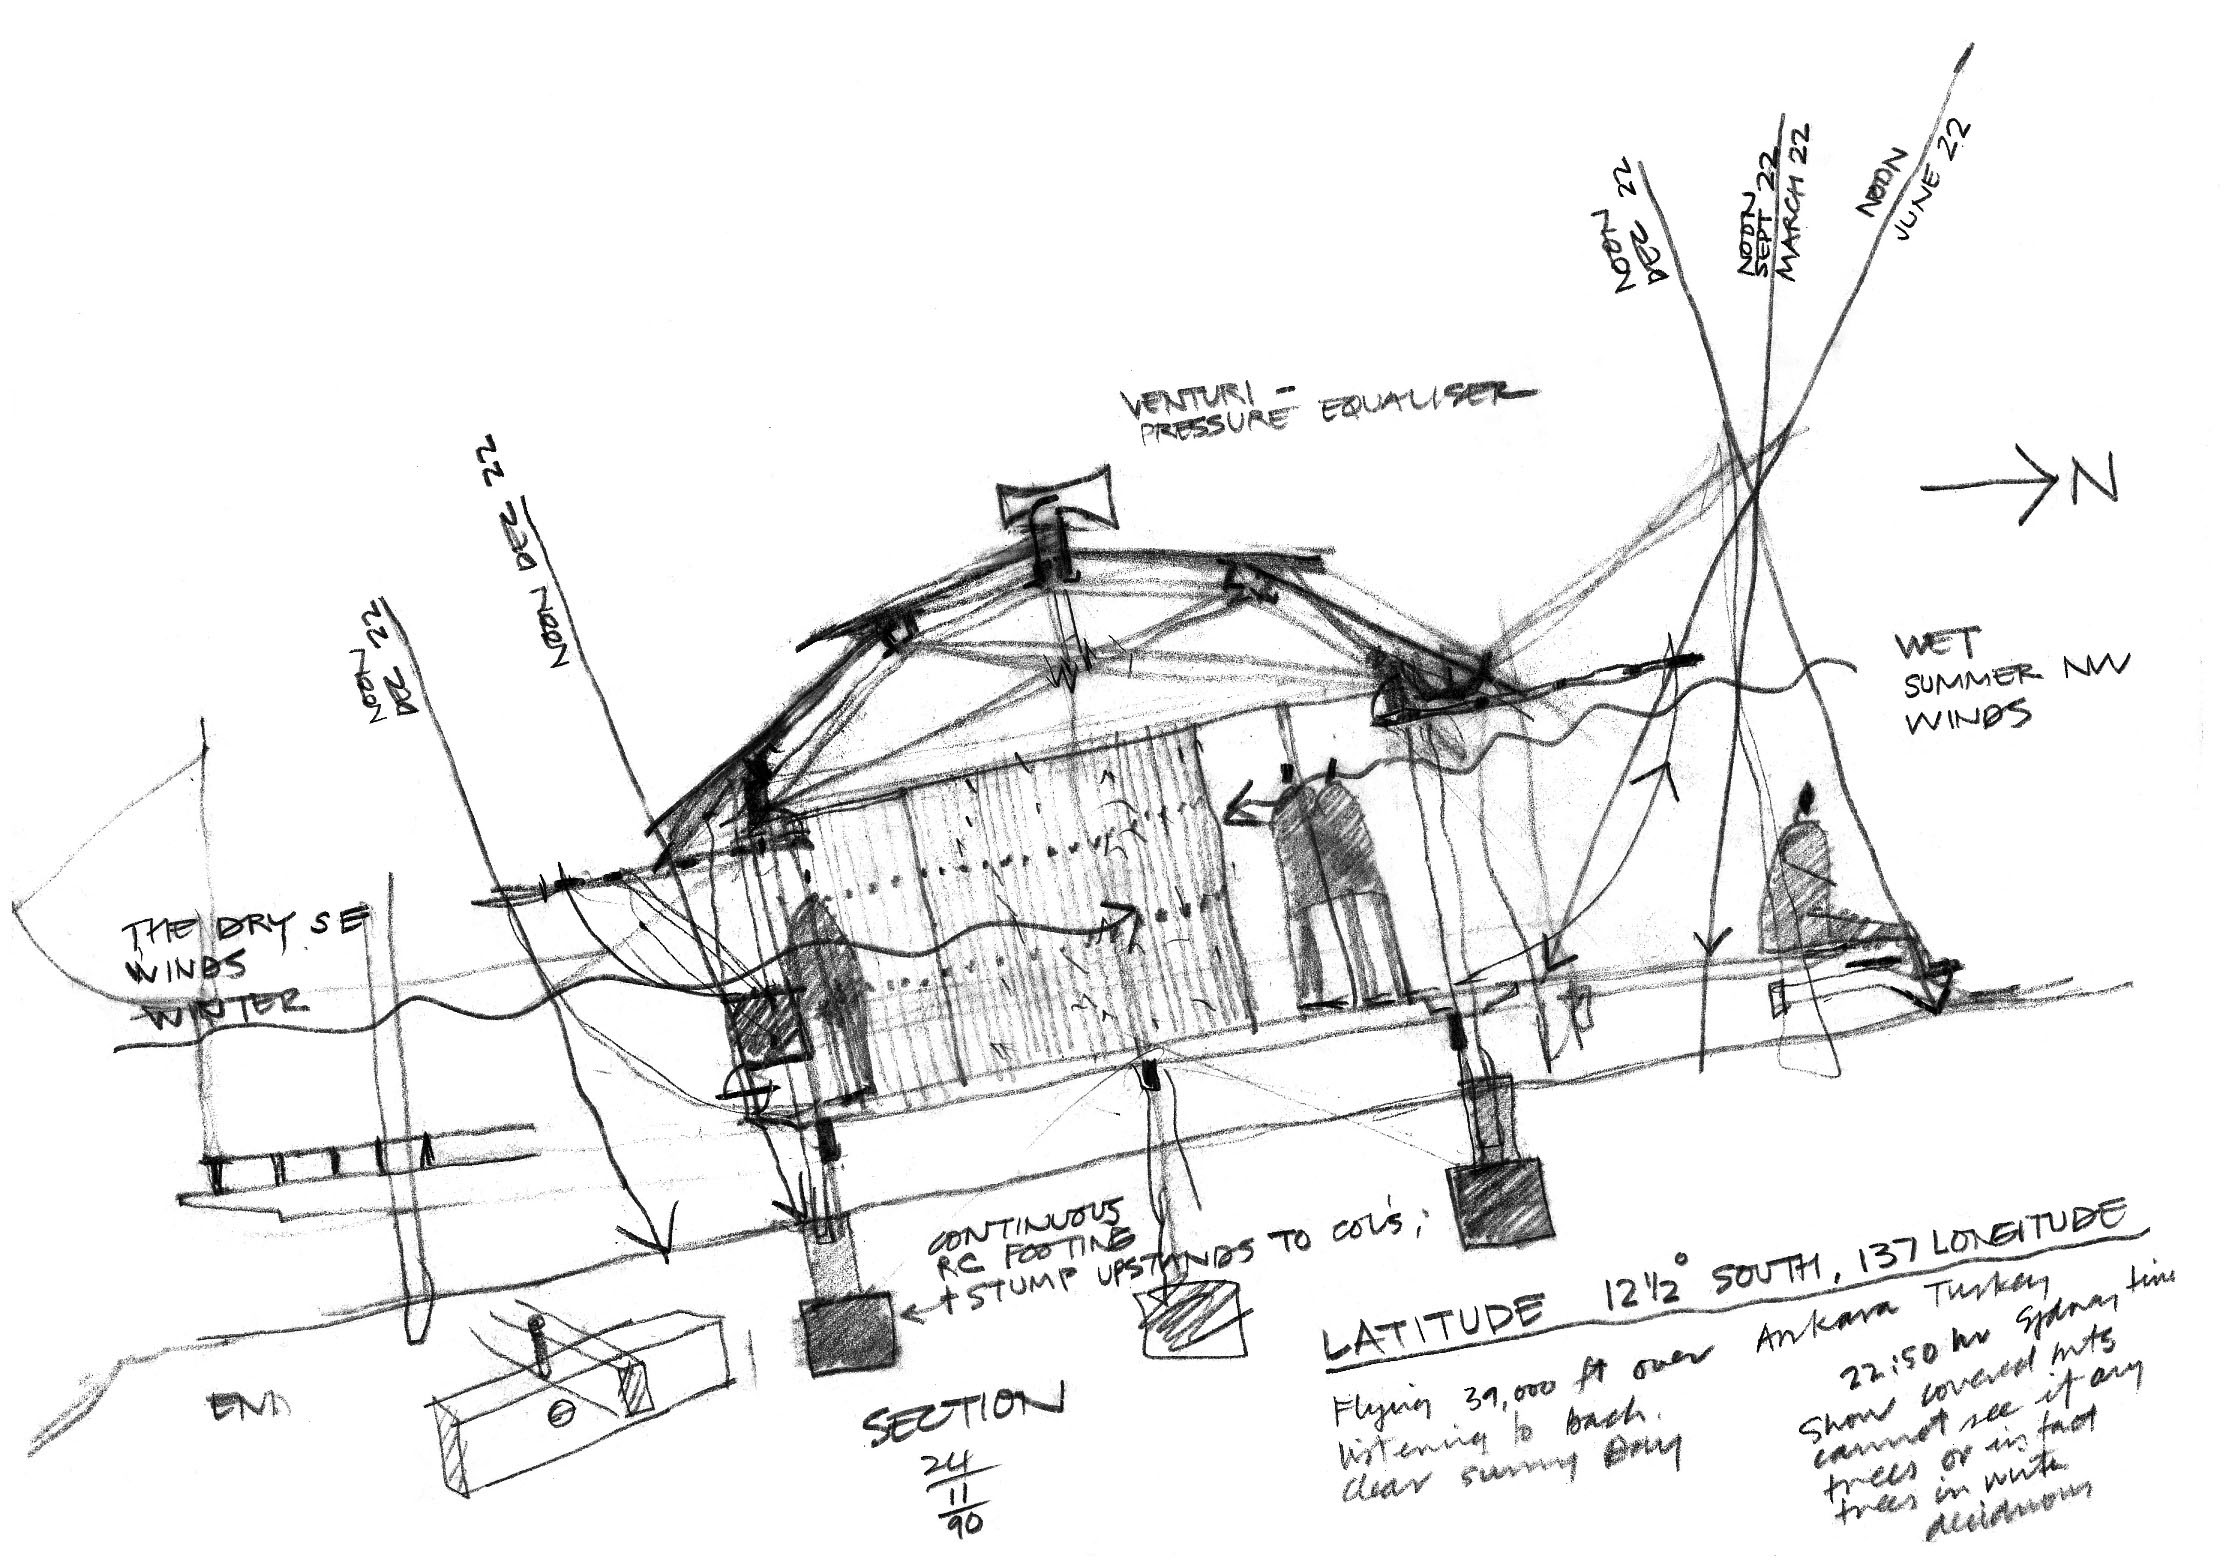 NOON
DEC 22
NOON
SEPT 22
MARCH 22
NOON
JUNE 22
VENTURI -
PRESSURE EQUALISER
N
NOON DEC 22
NOON
DEC 22
WET
SUMMER NW
WINDS
THE DRY SE
WINDS
WINTER
CONTINUOUS
RC FOOTING
+ STUMP UPSTANDS TO COL'S;
END
SECTION
24
11
90
LATITUDE 12 1/2° SOUTH, 137 LONGITUDE
Flying 39,000 ft over Ankara Turkey
listening to Bach.
clear sunny Day
22:50 hr Sydney time
Snow covered mts
cannot see if any
trees or in fact
trees in winter
deciduous